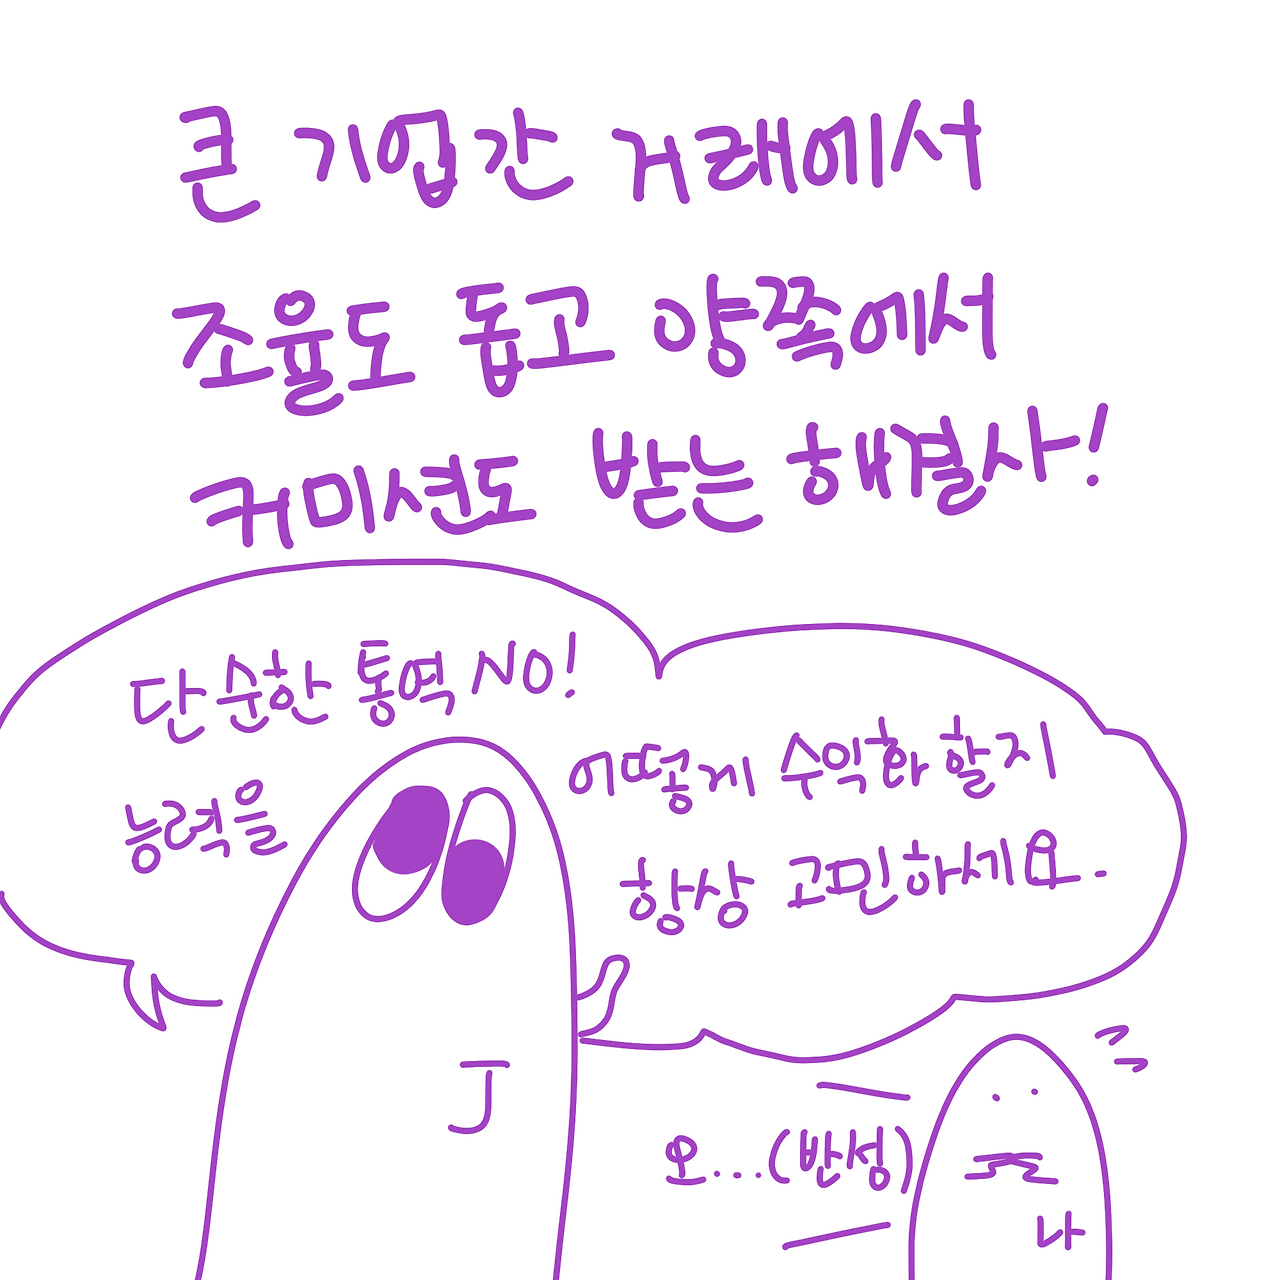 큰 기업간 거래에서
조율도 돕고 양쪽에서
커미션도 받는 해결사!
단순한 통역 NO!
능력을
어떻게 수익화 할지
항상 고민하세요.
J
오...(반성)
나